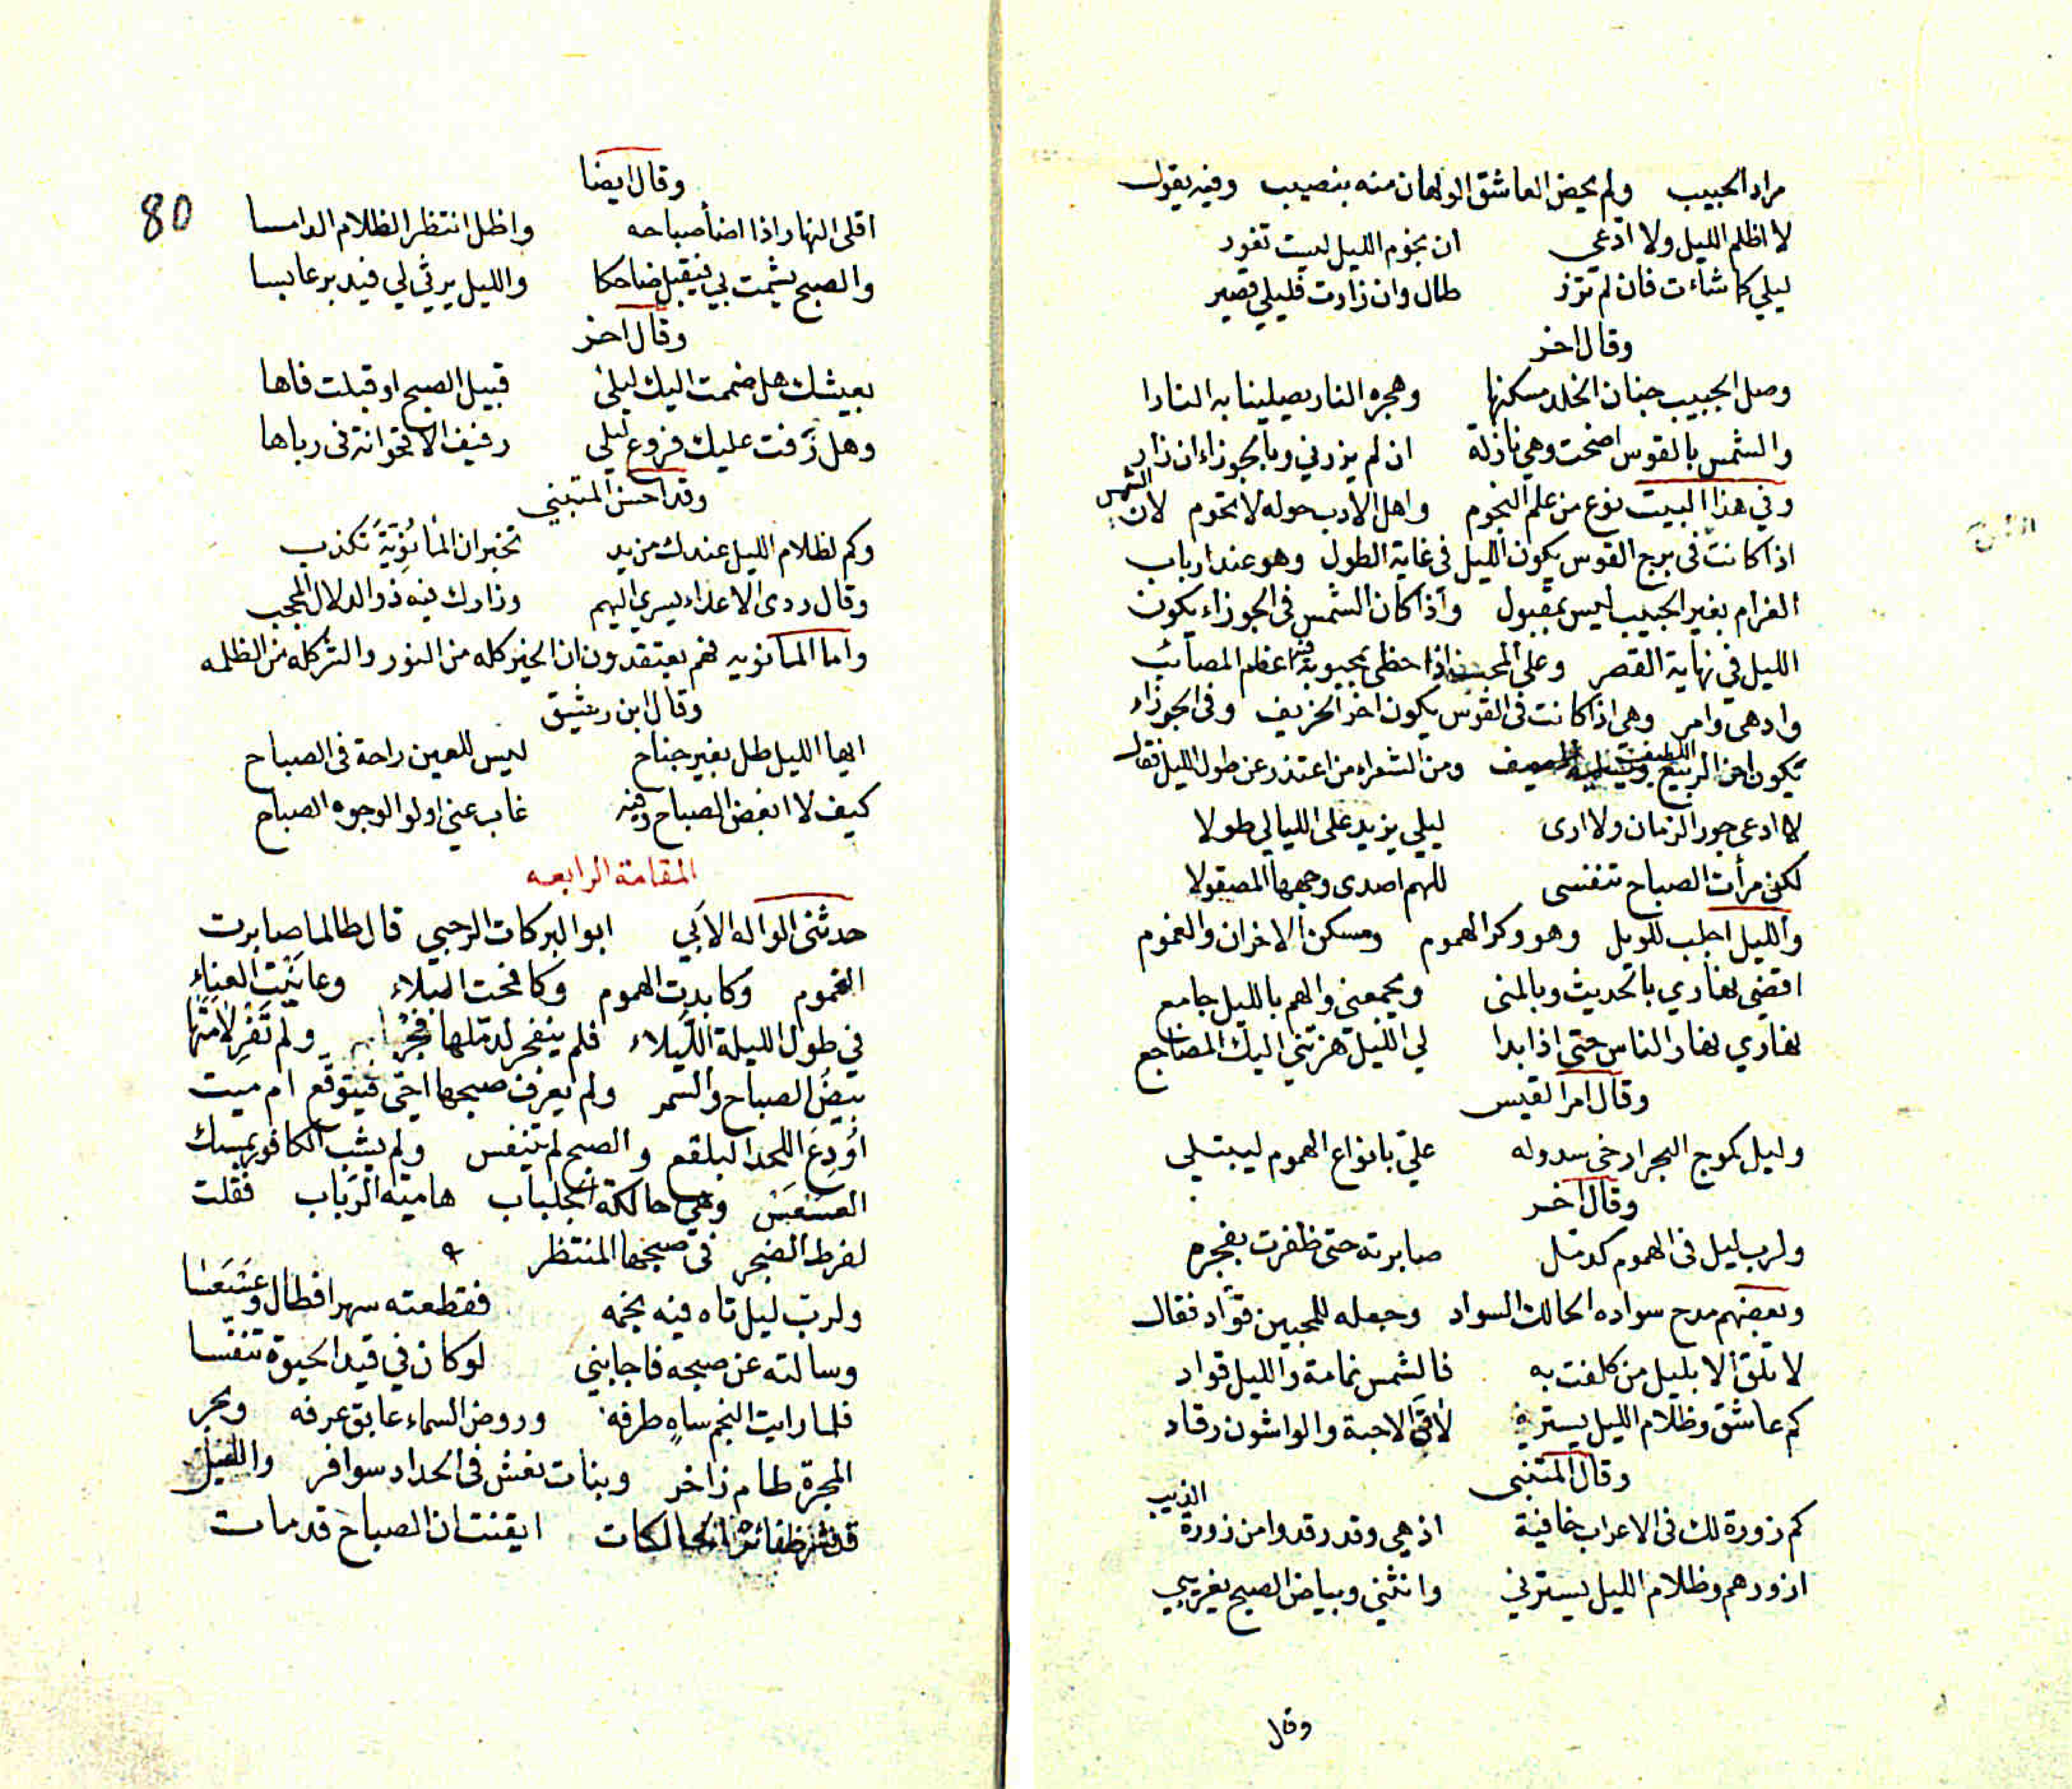 مراد الحبيب ولم يحض العاشق الولهان منه بنصيب وفيه يقول
لا اظلم الليل ولا ادّعي ان نجوم الليل ليست تغور
ليلي كما شاءت فان لم تزر طال وان زارت فليلي قصير
وقال اخر
وصل الحبيب جنان الخلد مسكنها وهجره النار يصلينا به النارا
والشمس بالقوس اضحت وهي نازلة ان لم يزرني وبالجوزاء ان زار
وفي هذا البيت نوع من علم النجوم واهل الادب حوله لا تحوم لان الشمس
اذا كانت فى برج القوس يكون الليل فى غاية الطول وهو عند ارباب
الغرام بغير الحبيب ليس بمقبول واذا كان الشمس فى الجوزاء يكون
الليل في نهاية القصر وعلى المحب اذا حظى بمحبوبه اعظم المصائب
وادهى وامر وهي اذا كانت فى القوس يكون اخر الخريف وفى الجوزاء
تكون اخر الربيع ومن الشعراء من اعتذر عن طول الليل فقال
لا ادعى جور الزمان ولا ارى ليلي يزيد على الليالي طولا
لكن مرأت الصباح تنفسى للهم اصدى وجهها المصقولا
والليل اجلب للويل وهو وكر الهموم ومسكن الاخزان والغموم
اقضي نهاري بالحديث وبالمنى ويجمعنى والهم بالليل جامع
نهاري نهار الناس حتى اذا بدا لي الليل هزتني اليك المضاجع
وقال امرا القيس
وليل كموج البحر ارخى سدوله عليّ بانواع الهموم ليبتلي
وقال اخر
ولرب ليل فى الهموم كدمل صابرته حتى ظفرت بفجره
وبعضهم مدح سواده الحالك السواد وجعله للمحبين قوّاد فقال
لا تلق الا بليل من كلفت به فالشمس نمامة والليل قواد
كم عاشق وظلام الليل يستره لاقى الاحبة والواشون رقاد
وقال المتنبى
كم زورة لك فى الاعراب خافية اذهى وقد رقدوا من زورة الذيب
ازورهم وظلام الليل يسترني وانثني وبياض الصبح يغريبي
وقال
80
وقال ايضا
اقلى النهار اذا اضأ صباحه واظل انتظر الظلام الدامسا
والصبح يشمت بي فيقبل ضاحكا والليل يرثي لي فيدبر عابسا
وقال اخر
بعيشك هل ضممت اليك ليلى قبيل الصبح او قبلت فاها
وهل زفت عليك فروع ليلى رفيف الاقحوانة فى رباها
وقد احسن المتنبي
وكم لظلام الليل عندك من يد تخبر ان المانُوِيّةَ تكذب
وقال ردى الاعداء يسري اليهم وزارك فيه ذو الدلال المحجب
واما المانويه فهم يعتقدون ان الخير كله من النور والشر كله من الظلمه
وقال ابن رشيق
ايها الليل طل بغير جناح ليس للعين راحة فى الصباح
كيف لا ابغض الصباح وفيه غاب عني اولو الوجوه الصباح
المقامة الرابعه
حدثنى الواله الابي ابو البركات الرحبي قال طالما صابرت
الغموم وكابدت الهموم وكافحت البلاء وعاينت العناء
في طول الليلة الليلاء فلم ينفجر لدمّلها فجر ولم تَفْرِ لامتها
بيض الصباح والسمر ولم يعرف صبحها احيّ فيتوقع ام ميت
اُودِعَ اللحد البلقع والصبح لم يتنفس ولم يشب الكافور بمسك
العسعس وهي حالكة الجلباب هامية الرَباب فقلت
لفرط الضجر فى صبحها المنتظر
ولرب ليل تاه فيه نجمه فقطعته سهرا فطال وعسعسا
وسالته عن صبحه فاجابني لو كان في قيد الحيوة تنفسا
فلما رايت النجم ساهٍ طرفه وروض السماء عابق عرفه وبحر
المجرة طام زاخر وبنات نعش فى الحداد سوافر والليل
ظفائره الحالكات ايقنت ان الصباح قد مات